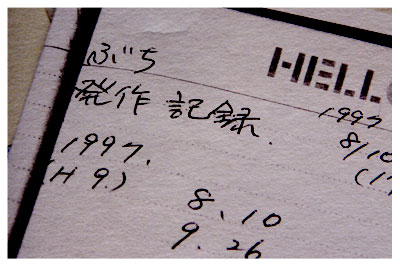 HELL
ぶち
発作 記録.
1997.
(H 9.)
8、10
9. 26
1997
8/10
(1